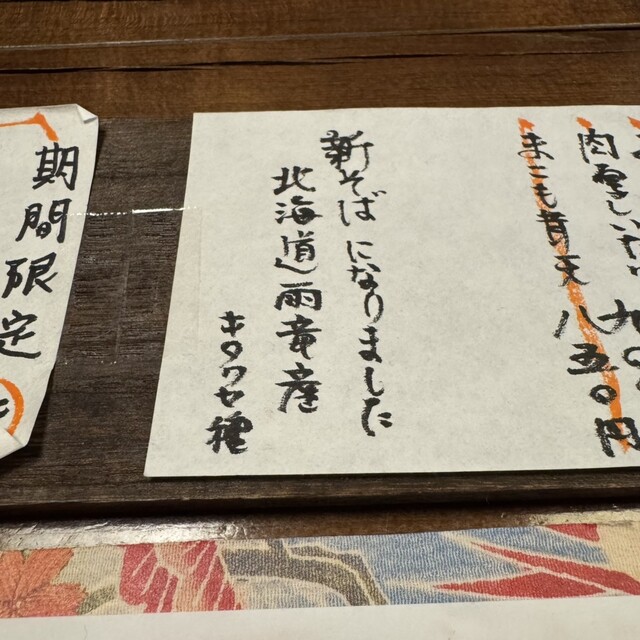 肉厚しいたけ 九〇
まこも茸天 八五〇円
新そばになりました
北海道雨竜産
キタワセ種
期間限定